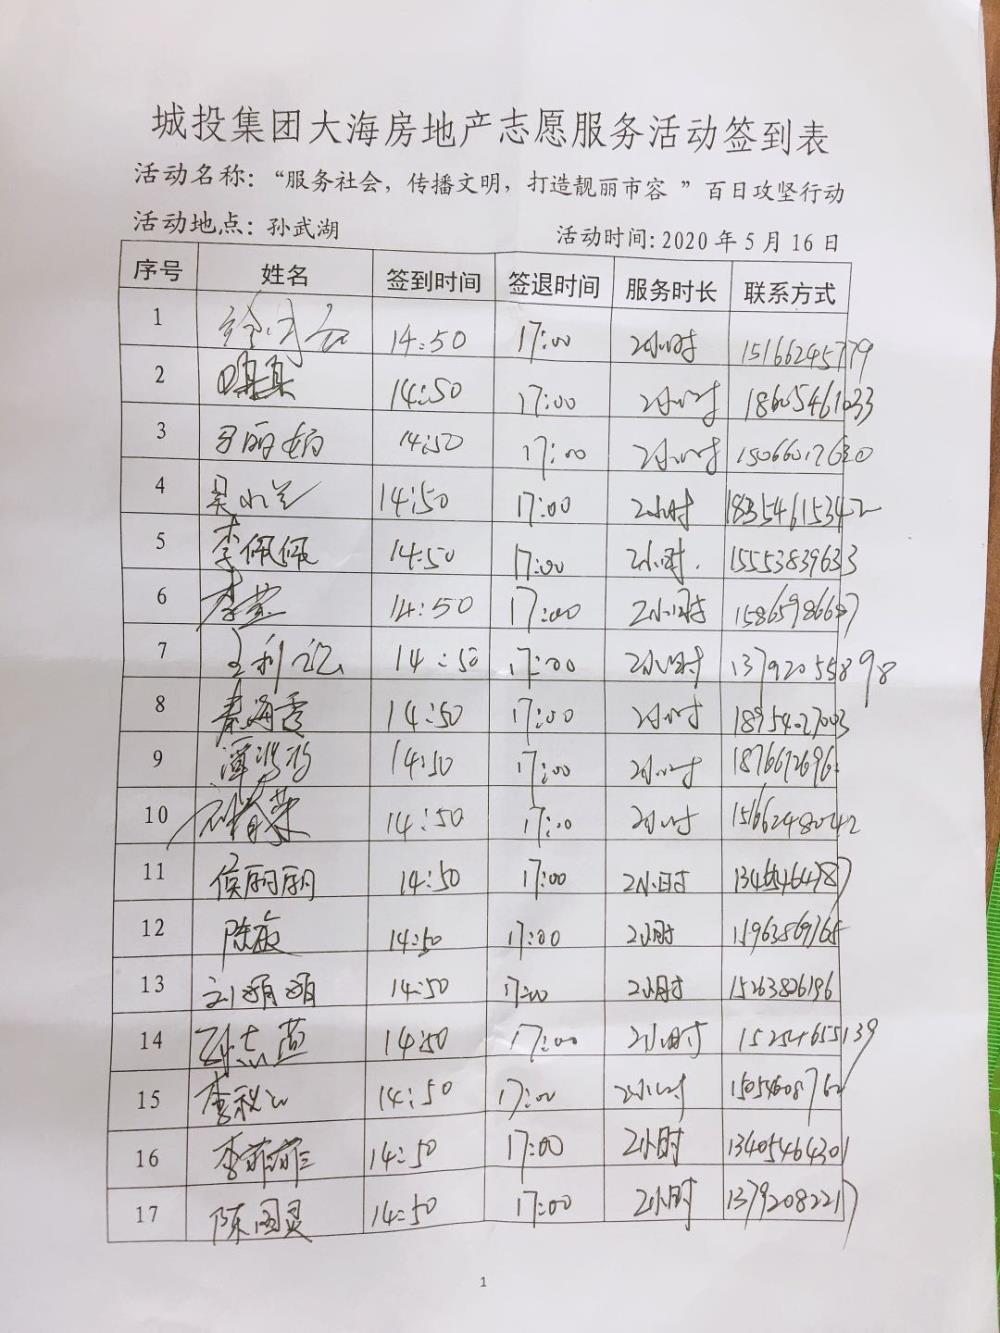 城投集团大海房地产志愿服务活动签到表
活动名称：“服务社会，传播文明，打造靓丽市容 ”百日攻坚行动
活动地点：孙武湖 活动时间：2020 年 5 月 16 日
序号 姓名 签到时间 签退时间 服务时长 联系方式
1 14:50 17:00 2小时 15166245779
2 14:50 17:00 2小时 18605461033
3 14:50 17:00 2小时
4 14:50 17:00 2小时 18354615342
5 李佩佩 14:50 17:00 2小时. 15553839633
6 14:50 17:00 2小时
7 14:50 17:00 2小时 13792055898
8 秦海霞 14:50 17:00 2小时 18954027003
9 14:50 17:00 2小时
10 14:50 17:00 2小时 15166248042
11 侯丽丽 14:50 17:00 2小时
12 14:50 17:00 2小时 15963869765
13 刘娟娟 14:50 17:00 2小时 15263826196
14 14:50 17:00 2小时 15254655139
15 14:50 17:00 2小时
16 李菲菲 14:50 17:00 2小时 13405464301
17 陈图灵 14:50 17:00 2小时 13792082217
1